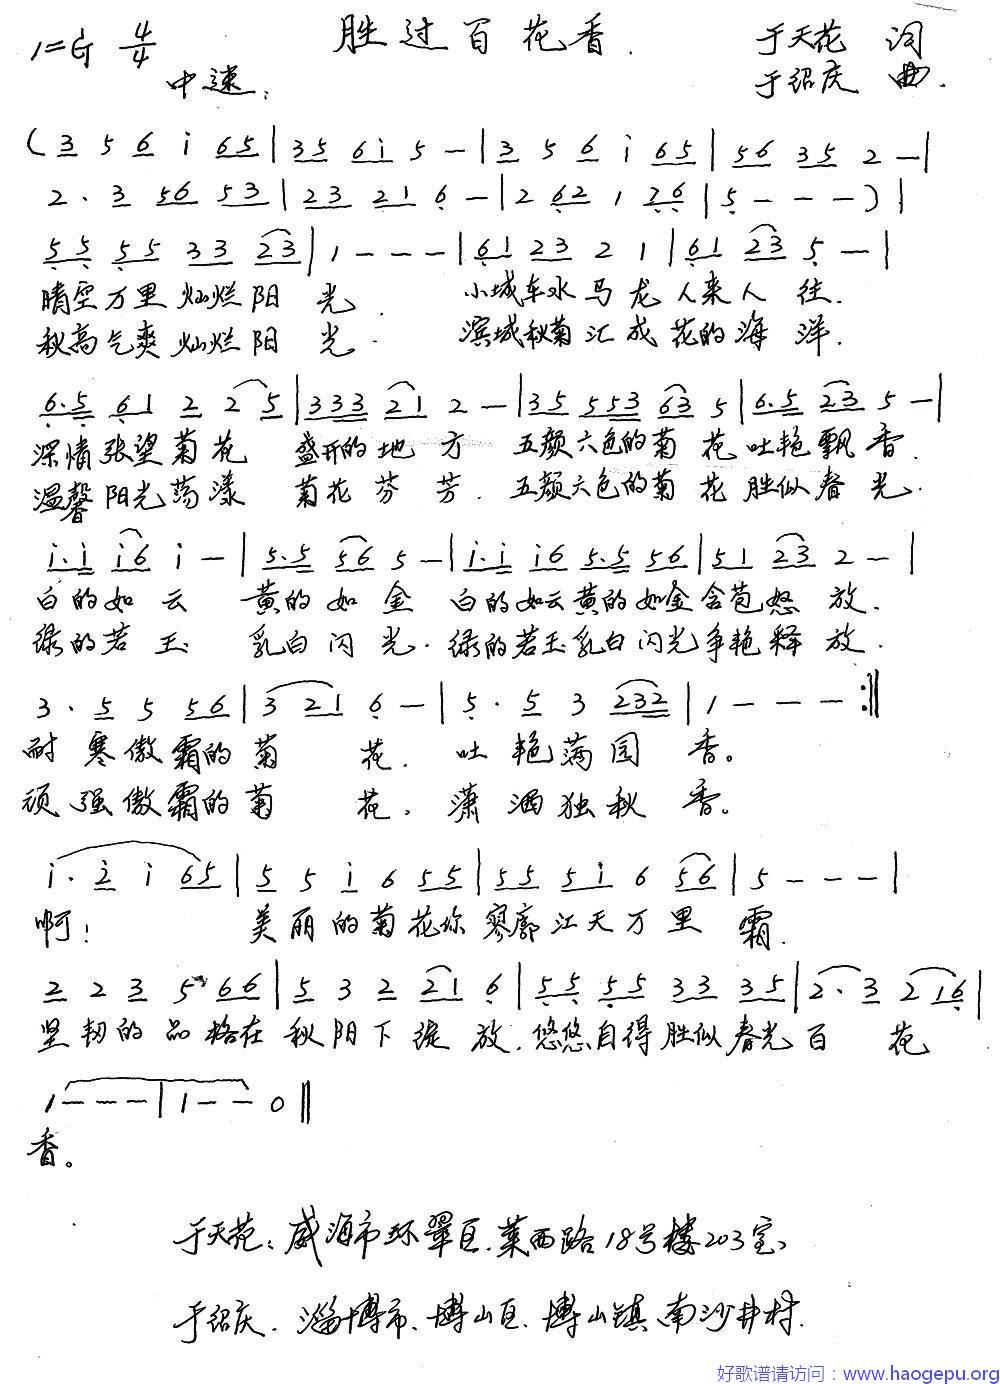 胜过百花香.
1=G 4/4
于天花 词
中速:
于绍庆 曲.
(3 5 6 i 65|35 6i 5 -|3 5 6 i 65|56 35 2 -|
2. 3 56 53|23 21 6 -|2 62 1 76|5 - - -)|
55 55 33 23|1 - - -|61 23 2 1|61 23 5 -|
晴空万里灿烂阳 光. 小城车水马龙人来人 往.
秋高气爽灿烂阳 光. 滨城秋菊汇成花的海 洋.
6.5 61 2 2 5|333 21 2 -|35 553 63 5|6.5 23 5 -|
深情张望菊花 盛开的地 方 五颜六色的菊 花吐艳飘 香.
温馨阳光荡漾 菊花芬 芳. 五颜六色的菊 花胜似春 光.
i.i i6 i -|5.5 56 5 -|i.i i6 5.5 56|51 23 2 -|
白的如云 黄的如金 白的如云黄的如金含苞怒 放.
绿的若玉 乳白闪光. 绿的若玉乳白闪光争艳释 放.
3. 5 5 56|3 21 6 -|5. 5 3 232|1 - - - :||
耐 寒傲霜的菊 花. 吐 艳满园 香。
顽强傲霜的菊 花, 潇 洒独秋 香。
i. 2 i 65|5 5 i 6 55|55 5i 6 56|5 - - -|
啊! 美丽的菊花你寥廓江天万里 霜.
2 2 3 5 66|5 3 2 21 6|55 55 33 35|2. 3 2 16|
坚韧的品格在秋阳下绽 放. 悠悠自得胜似春光百 花
1 - - -|1 - - 0||
香。
于天花: 威海市环翠区.莱西路18号楼203室、
于绍庆. 淄博市、博山区.博山镇、南沙井村.
好歌谱请访问：www.haogepu.org